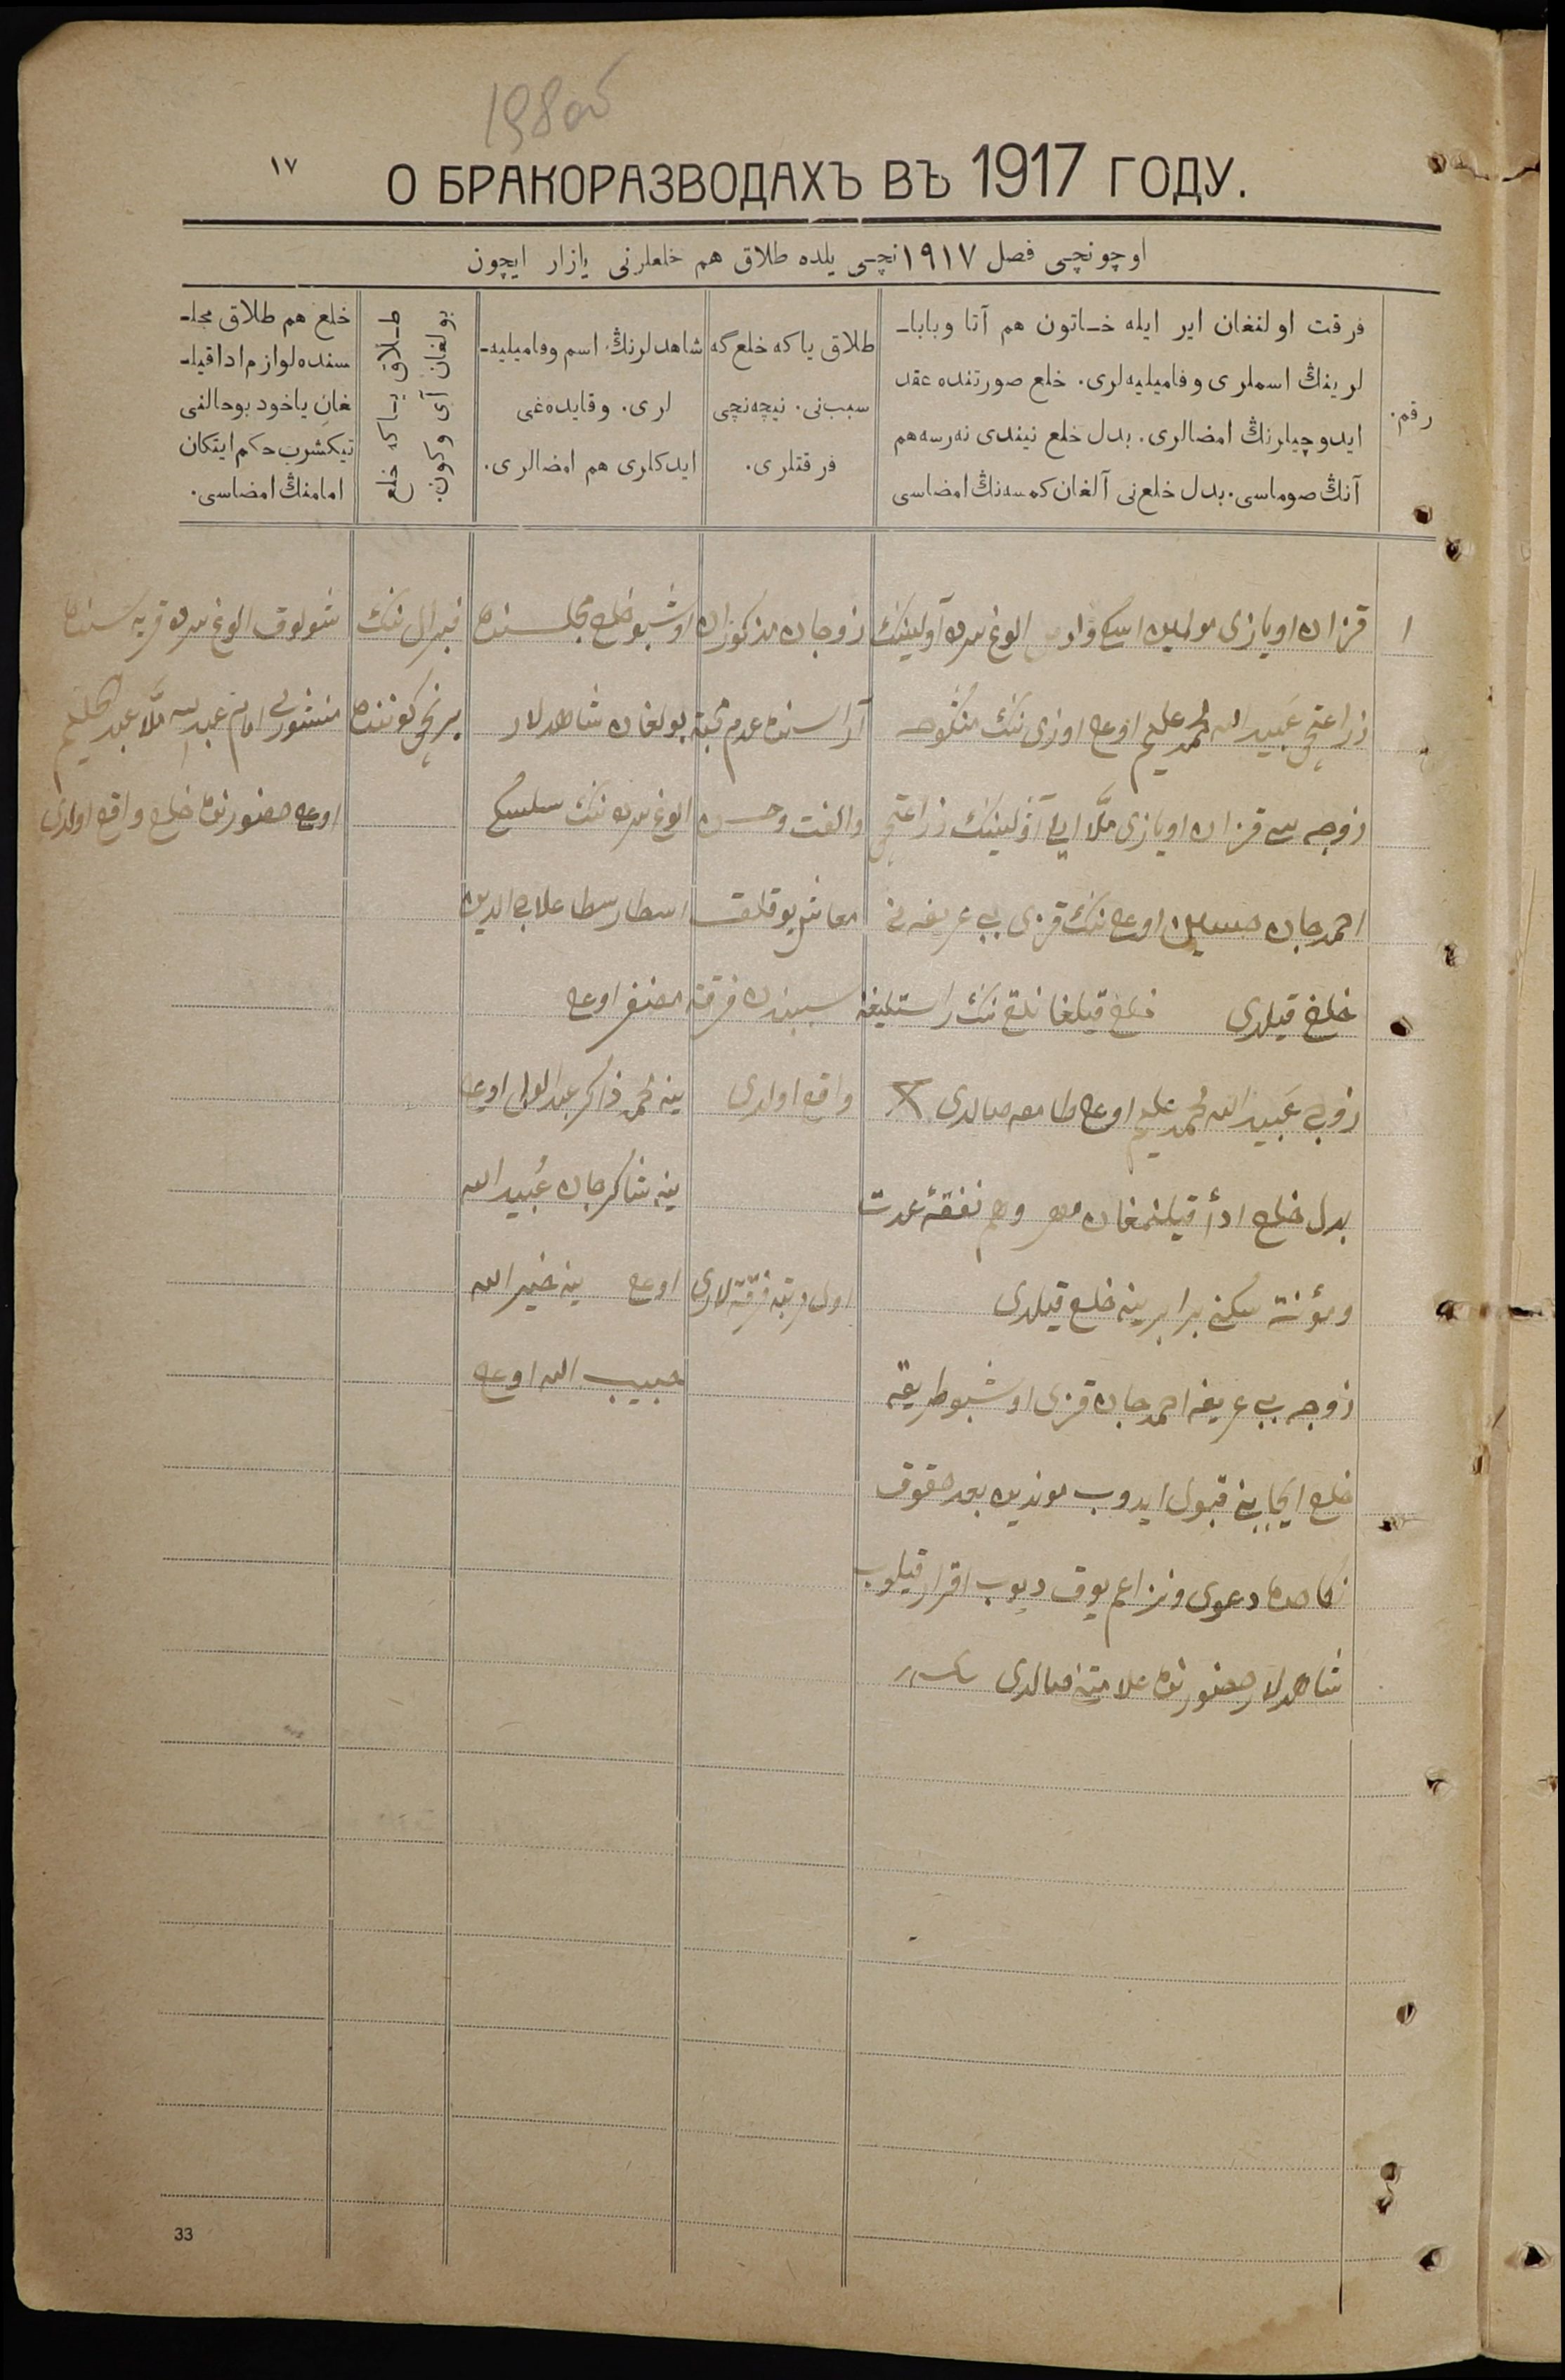 198об
١٧
О БРАКОРАЗВОДАХЪ ВЪ 1917 ГОДУ.
اوچونچی فصل ١٩١٧نچی یلده طلاق هم خلعلرنی یازار ایچون
رقم.
فرقت اولنغان ایر ایله خاتون هم آتا وبابا-
لرینڭ اسملری وفامیلیه‌لری. خلع صورتنده عقد
ایدوچیلرنڭ امضالری. بدل خلع نیندی نه‌رسه هم
آنڭ صوماسی. بدل خلعنی آلغان کمسه‌نڭ امضاسی
طلاق یاکه خلع گه
سبب‌نی. نیچه‌نچی
فرقتلری.
شاهدلرنڭ اسم وفامیلیه-
لری. وقایده‌غی
ایدکلری هم امضالری.
طلاق یاکه خلع
بولغان آی وکون.
خلع هم طلاق مجلـ-
سنده لوازم ادا قیلـ-
غان یاخود بوحالنی
تیکشرب حکم ایتکان
امامنڭ امضاسی.
١
قزان اویازی الوغ آولینڭ
زراعتچی عبیدالله محمدعلیم اوغلی اوزی ننڭ منکوحه
زوجه سی قزان اویازی ملا ایلی آولینڭ زراعتچی
احمدجان اوغلی ننڭ قزی بی بی عریفه نی
خلع قیلدی خلع قیلغانلق ننڭ راستلیغینه
زوجی عبیدالله محمدعلیم اوغلی طامغه صالدی X
بدل خلع ادأ قیلنمغان مهر وهم نفقهٔ عدت
ومؤنة سکنی برابرینه خلع قیلدی
زوجه بی بی عریفه احمدجان قزی اوشبو طریقه
خلع ایجابینی قبول ایدوب موندین بعد حقوق
نکاحده دعوی ونزاعم یوق دیوب اقرار قیلوب
شاهدلار حضورنده علامتن صالدی
زوجان مذکوران
آراسنده عدم محبة
والفت وحسن
معاش یوقلق
سببندن فرقة
واقع اولدی
اول مرتبه فرقة لاری
اوشبو خلع مجلسنده
بولغان شاهدلار
الوغ ننڭ
علاء الدین
اوغلی
ینه محمد ذاکر عبدالولی اوغلی
ینه شاکرجان عبیدالله
اوغلی ینه خیرالله
حبیب الله اوغلی
فبرال ننڭ
برنچی کوننده
شولوق الوغ قریه سنده
منشورلی امام عبدالله ملا عبدالحلیم
اوغلی حضورنده خلع واقع اولدی
33